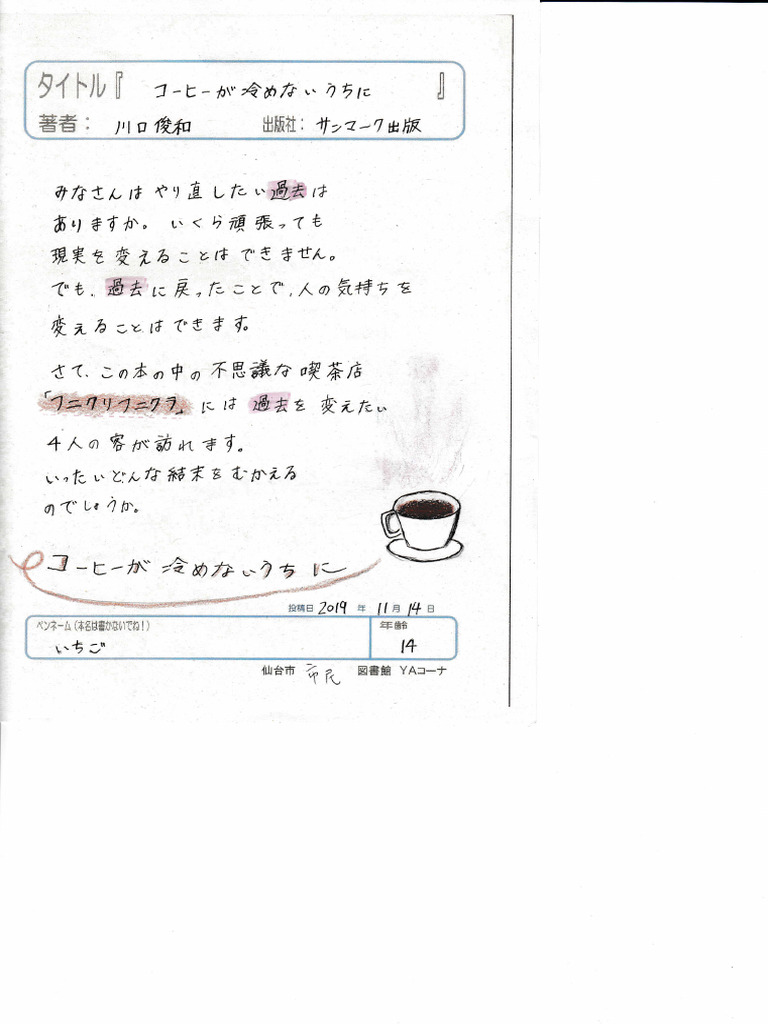 タイトル『 コーヒーが冷めないうちに 』
著者： 川口俊和 出版社： サンマーク出版
みなさんは やり直したい過去は
ありますか。いくら頑張っても
現実を変えることはできません。
でも、過去に戻ったことで、人の気持ちを
変えることはできます。
さて、この本の中の不思議な喫茶店
「フニクリフニクラ」には過去を変えたい
4人の客が訪れます。
いったいどんな結末をむかえる
のでしょうか。
コーヒーが冷めないうちに
投稿日 2019 年 11月 14日
ペンネーム（本名は書かないでね！） 年齢
いちご 14
仙台市 市民 図書館 YAコーナ